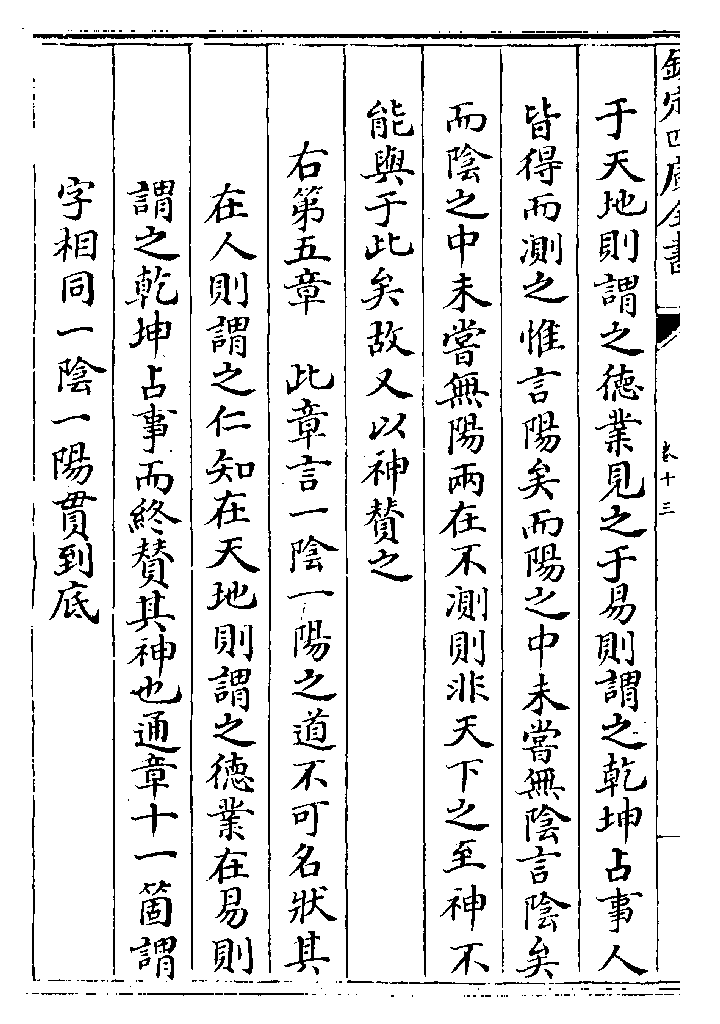 欽定四庫全書
卷十三
于天地則謂之德業見之于易則謂之乾坤占事人
皆得而測之惟言陽矣而陽之中未嘗無陰言陰矣
而陰之中未嘗無陽兩在不測則非天下之至神不
能與于此矣故又以神賛之
右第五章　此章言一陰一陽之道不可名狀其
在人則謂之仁知在天地則謂之德業在易則
謂之乾坤占事而終賛其神也通章十一箇謂
字相同一陰一陽貫到底